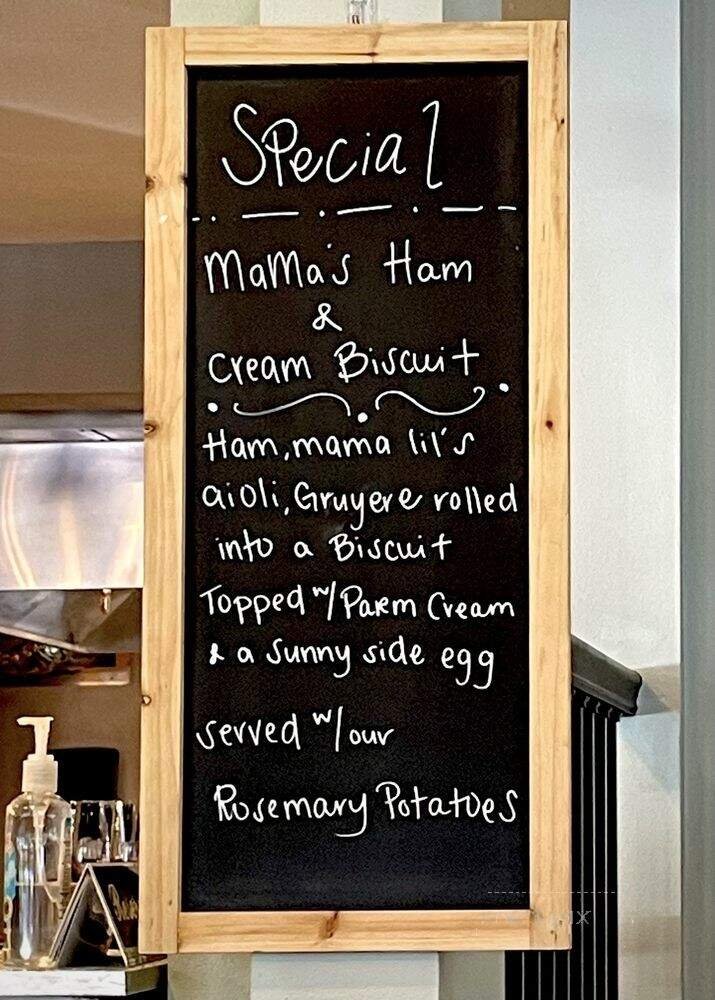 Special
MaMa's Ham
&
Cream Biscuit
Ham, mama lil's
aioli, Gruyere rolled
into a Biscuit
Topped w/ Parm Cream
& a sunny side egg
served w/ our
Rosemary Potatoes